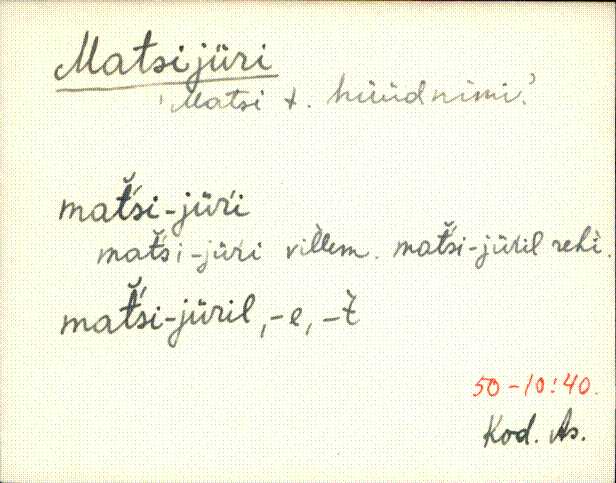 Matsijüri
'Matsi t. hüüdnimi'
mat̆śi-jüŕi
mat̆śi-jüŕi vil̀lem. mat̆śi-jüŕil rehì.
mat̆śi-jüril, -e, -t̀
50-10:40.
Kod. As.